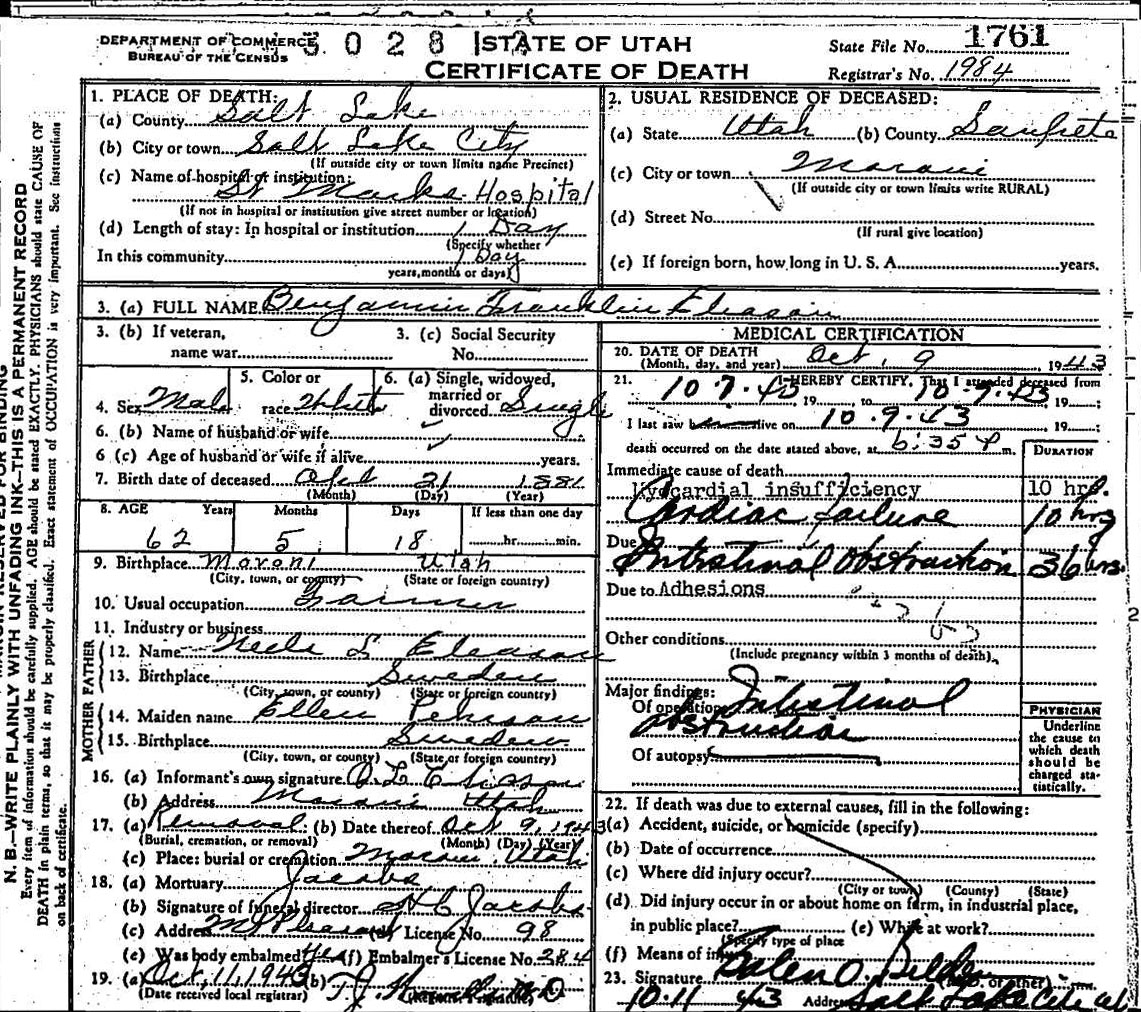 DEPARTMENT OF COMMERCE
BUREAU OF THE CENSUS
5 0 2 8
STATE OF UTAH
CERTIFICATE OF DEATH
State File No. 1761
Registrar's No. 1984
N. B.—WRITE PLAINLY WITH UNFADING INK—THIS IS A PERMANENT RECORD
Every item of information should be carefully supplied. AGE should be stated EXACTLY. PHYSICIANS should state CAUSE OF
DEATH in plain terms, so that it may be properly classified. Exact statement of OCCUPATION is very important. See instructions
on back of certificate.
1. PLACE OF DEATH:
(a) County Salt Lake
(b) City or town Salt Lake City
(If outside city or town limits name Precinct)
(c) Name of hospital or institution:
St Marks Hospital
(If not in hospital or institution give street number or location)
(d) Length of stay: In hospital or institution 1 Day
(Specify whether
In this community 1 Day
years, months or days)
2. USUAL RESIDENCE OF DECEASED:
(a) State Utah (b) County Sanpete
(c) City or town Moroni
(If outside city or town limits write RURAL)
(d) Street No.
(If rural give location)
(e) If foreign born, how long in U. S. A. years.
3. (a) FULL NAME Benjamin Franklin Eleason
3. (b) If veteran,
name war
3. (c) Social Security
No.
4. Sex Male
5. Color or
race White
6. (a) Single, widowed,
married or
divorced Single
6. (b) Name of husband or wife
6 (c) Age of husband or wife if alive years.
7. Birth date of deceased 21 1881
(Month) (Day) (Year)
8. AGE Years Months Days If less than one day
62 5 18 hr. min.
9. Birthplace Moroni Utah
(City, town, or county) (State or foreign country)
10. Usual occupation Farmer
11. Industry or business
FATHER
12. Name Neels L Eleason
13. Birthplace Sweden
(City, town, or county) (State or foreign country)
MOTHER
14. Maiden name Ellen Pehrson
15. Birthplace Sweden
(City, town, or county) (State or foreign country)
16. (a) Informant's own signature
(b) Address Moroni Utah
17. (a) Removal (b) Date thereof Oct 9, 1943
(Burial, cremation, or removal) (Month) (Day) (Year)
(c) Place: burial or cremation Moroni Utah
18. (a) Mortuary Jacobs
(b) Signature of funeral director Jacobs
(c) Address Mt Pleasant (d) License No. 98
(e) Was body embalmed Yes (f) Embalmer's License No. 284
19. (a) Oct, 11, 1943 (b)
(Date received local registrar)
MEDICAL CERTIFICATION
20. DATE OF DEATH
(Month, day, and year) Oct, 9 1943
21. I HEREBY CERTIFY, That I attended deceased from
19 , to 10.9.43 19 ;
I last saw alive on 10.9.43 19 ;
death occurred on the date stated above, at 6:35 P m.
DURATION
Immediate cause of death
Myocardial insufficiency 10 hrs.
Cardiac failure 10 hrs
Due
Intestinal obstruction 36 hrs.
Due to Adhesions
Other conditions
(Include pregnancy within 3 months of death)
Major findings:
Of operation Intestinal
obstruction
Of autopsy
PHYSICIAN
Underline
the cause to
which death
should be
charged sta-
tistically.
22. If death was due to external causes, fill in the following:
(a) Accident, suicide, or homicide (specify)
(b) Date of occurrence
(c) Where did injury occur?
(City or town) (County) (State)
(d) Did injury occur in or about home on farm, in industrial place,
in public place? (e) While at work?
(Specify type of place
(f) Means of injury
23. Signature Galen O. Belden (M.D. or other)
10.11 43 Address Salt Lake City